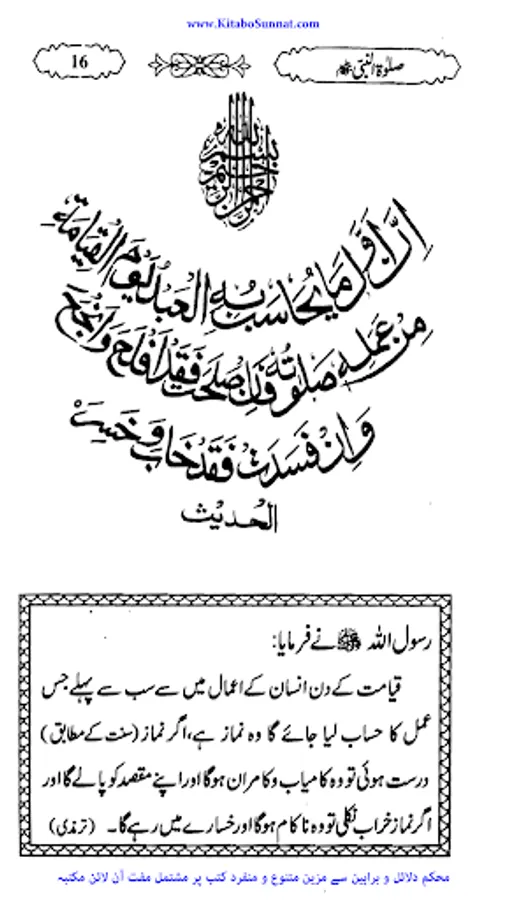 www.KitaboSunnat.com
صلوٰۃ النبی ﷺ
16
بسم الله الرحمن الرحيم
اِنَّ اَوَّلَ مَا يُحَاسَبُ بِهِ الْعَبْدُ يَوْمَ الْقِيَامَةِ
مِنْ عَمَلِهِ صَلٰوتُهُ فَاِنْ صَلُحَتْ فَقَدْ اَفْلَحَ وَاَنْجَحَ
وَاِنْ فَسَدَتْ فَقَدْ خَابَ وَخَسِرَ
الحديث
رسول اللہ ﷺ نے فرمایا:
قیامت کے دن انسان کے اعمال میں سے سب سے پہلے جس
عمل کا حساب لیا جائے گا وہ نماز ہے، اگر نماز (سنت کے مطابق)
درست ہوئی تو وہ کامیاب و کامران ہوگا اور اپنے مقصد کو پالے گا اور
اگر نماز خراب نکلی تو وہ ناکام ہوگا اور خسارے میں رہے گا۔ (ترمذی)
محکم دلائل و براہین سے مزین متنوع و منفرد کتب پر مشتمل مفت آن لائن مکتبہ